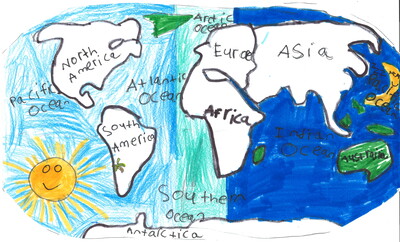 Arctic
Ocean
North
America
Europe
ASia
Pacific
Ocean
Atlantic
Ocean
Africa
South
America
Indian
Ocean
Australia
Southern
Ocean
Antarctica